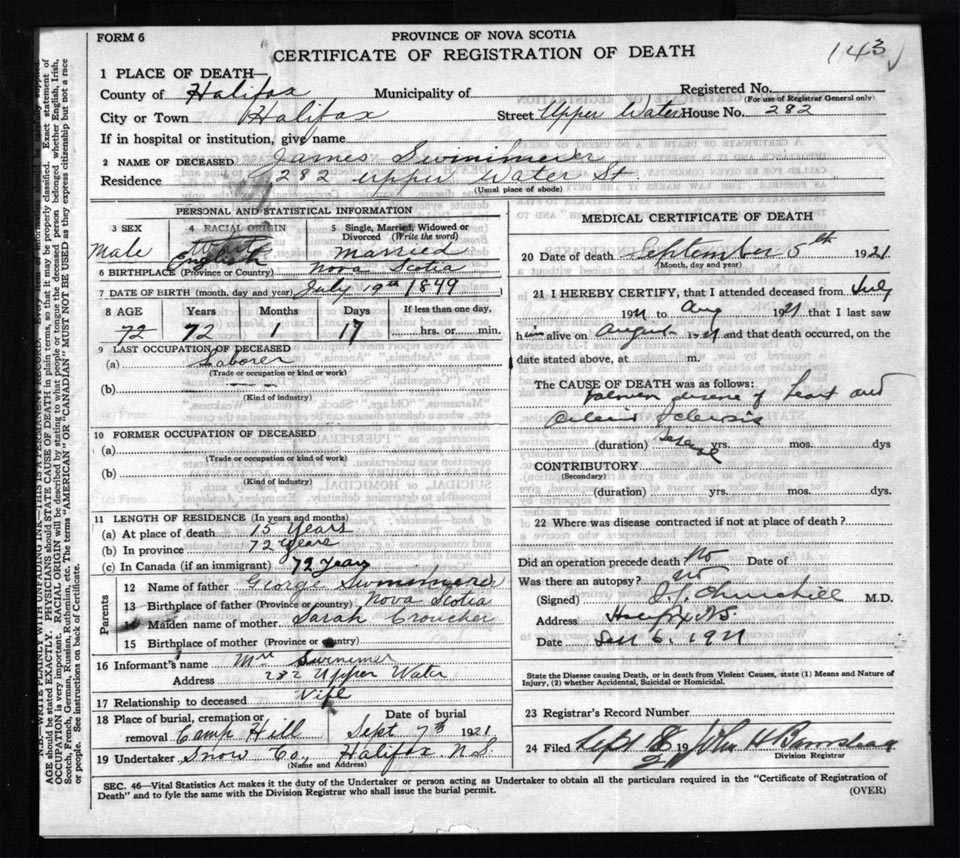 FORM 6
PROVINCE OF NOVA SCOTIA
CERTIFICATE OF REGISTRATION OF DEATH
143
1 PLACE OF DEATH—
County of Halifax Municipality of Registered No.
(For use of Registrar General only)
City or Town Halifax Street Upper Water House No. 282
If in hospital or institution, give name
2 NAME OF DECEASED James
Residence 282 Upper Water St
(Usual place of abode)
PERSONAL AND STATISTICAL INFORMATION
3 SEX 4 RACIAL ORIGIN 5 Single, Married, Widowed or Divorced (Write the word)
Male English Married
6 BIRTHPLACE (Province or Country) Nova Scotia
7 DATE OF BIRTH (month, day and year) July 19th 1849
8 AGE Years Months Days If less than one day,
72 72 1 17 hrs. or min.
9 LAST OCCUPATION OF DECEASED
(a) Laborer
(Trade or occupation or kind or work)
(b)
(Kind of industry)
10 FORMER OCCUPATION OF DECEASED
(a)
(Trade or occupation or kind of work)
(b)
(Kind of industry)
11 LENGTH OF RESIDENCE (In years and months)
(a) At place of death 15 Years
(b) In province 72 Years
(c) In Canada (if an immigrant) 72 Years
Parents
12 Name of father George
13 Birthplace of father (Province or country) Nova Scotia
14 Maiden name of mother Sarah Croucher
15 Birthplace of mother (Province or country)
16 Informant's name Mrs Swinimer
Address 282 Upper Water
17 Relationship to deceased Wife
18 Place of burial, cremation or removal Camp Hill Date of burial Sept 7th 1921
19 Undertaker Snow Co., Halifax N.S.
(Name and Address)
MEDICAL CERTIFICATE OF DEATH
20 Date of death September 5th 1921
(Month, day and year)
21 I HEREBY CERTIFY, that I attended deceased from July
1921 to Aug 1921 that I last saw
him alive on August 1921 and that death occurred, on the
date stated above, at m.
The CAUSE OF DEATH was as follows:
disease of heart and
(duration) yrs. mos. dys
CONTRIBUTORY
(Secondary)
(duration) yrs. mos. dys.
22 Where was disease contracted if not at place of death?
Did an operation precede death? No Date of
Was there an autopsy? No
(Signed) Churchill M.D.
Address Halifax NS.
Date Sep 6. 1921
State the Disease causing Death, or in death from Violent Causes, state (1) Means and Nature of
Injury, (2) whether Accidental, Suicidal or Homicidal.
23 Registrar's Record Number
24 Filed Sept 8 19 John H
Division Registrar
SEC. 46—Vital Statistics Act makes it the duty of the Undertaker or person acting as Undertaker to obtain all the particulars required in the "Certificate of Registration of
Death" and to fyle the same with the Division Registrar who shall issue the burial permit. (OVER)
N.B.—WRITE PLAINLY WITH UNFADING INK—THIS IS A PERMANENT RECORD.
AGE should be stated EXACTLY. PHYSICIANS should STATE CAUSE OF DEATH in plain terms, so that it may be properly classified. Exact statement of
OCCUPATION is very important. RACIAL ORIGIN will be described by stating to what people or tongue the deceased person belonged whether English, Irish,
Scotch, French, German, Russian, Ruthenian, etc. The terms "AMERICAN" OR "CANADIAN" MUST NOT BE USED as they express citizenship but not a race
or people. See instructions on back of Certificate.